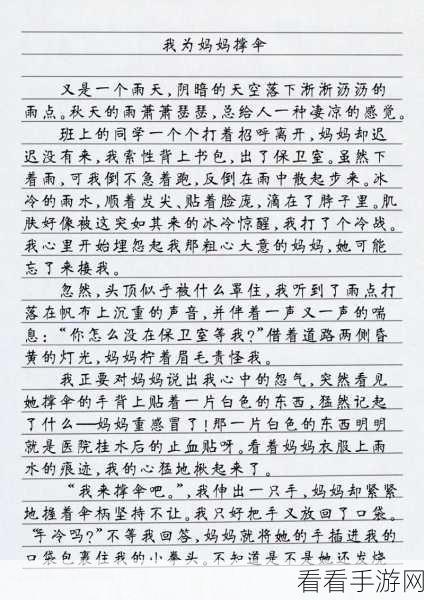 我为妈妈撑伞
又是一个雨天,阴暗的天空落下淅淅沥沥的
雨点。秋天的雨萧萧瑟瑟,总给人一种凄凉的感觉。
班上的同学一个个打着招呼离开,妈妈却迟
迟没有来,我索性背上书包,出了保卫室。虽然下
着雨,可我倒不急着跑,反倒在雨中散起步来。冰
冷的雨水,顺着发尖、贴着脸庞,滴在了脖子里。肌
肤好像被这突如其来的冰冷惊醒,我打了个冷战。
我心里开始埋怨起我那粗心大意的妈妈,她可能
忘了来接我。
忽然,头顶似乎被什么罩住,我听到了雨点打
落在帆布上沉重的声音,并伴着一声又一声的喘
息:“你怎么没在保卫室等我?”借着道路两侧昏
黄的灯光,妈妈拧着眉毛责怪我。
我正要对妈妈说出我心中的怨气,突然看见
她撑伞的手背上贴着一片白色的东西,猛然记起
了什么——妈妈重感冒了!那一片白色的东西明明
就是医院挂水后的止血贴呀。看着妈妈衣服上雨
水的痕迹,我的心猛地揪起来了。
“我来撑伞吧。”,我伸出一只手,妈妈却紧紧
地握着伞柄坚持不让。我只好把手又放回了口袋。
“手冷吗?”不等我回答,妈妈就将她的手插进我的
口袋包裹住我的小拳头。不知道是不是她还发烧
看看手游网